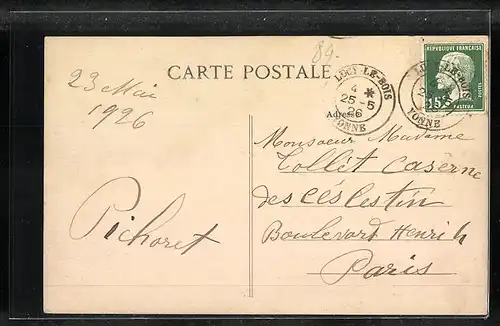 84.
CARTE POSTALE
23 Mai
1926
Pichoret
LUCY-LE-BOIS
4 *
25 -5
26
YONNE
RÉPUBLIQUE FRANÇAISE
15c
PASTEUR
POSTES
YONNE
Adresse
Monsoeur Madame
Collet Caserne
des Céslestin
Boulevard Henri 4
Paris